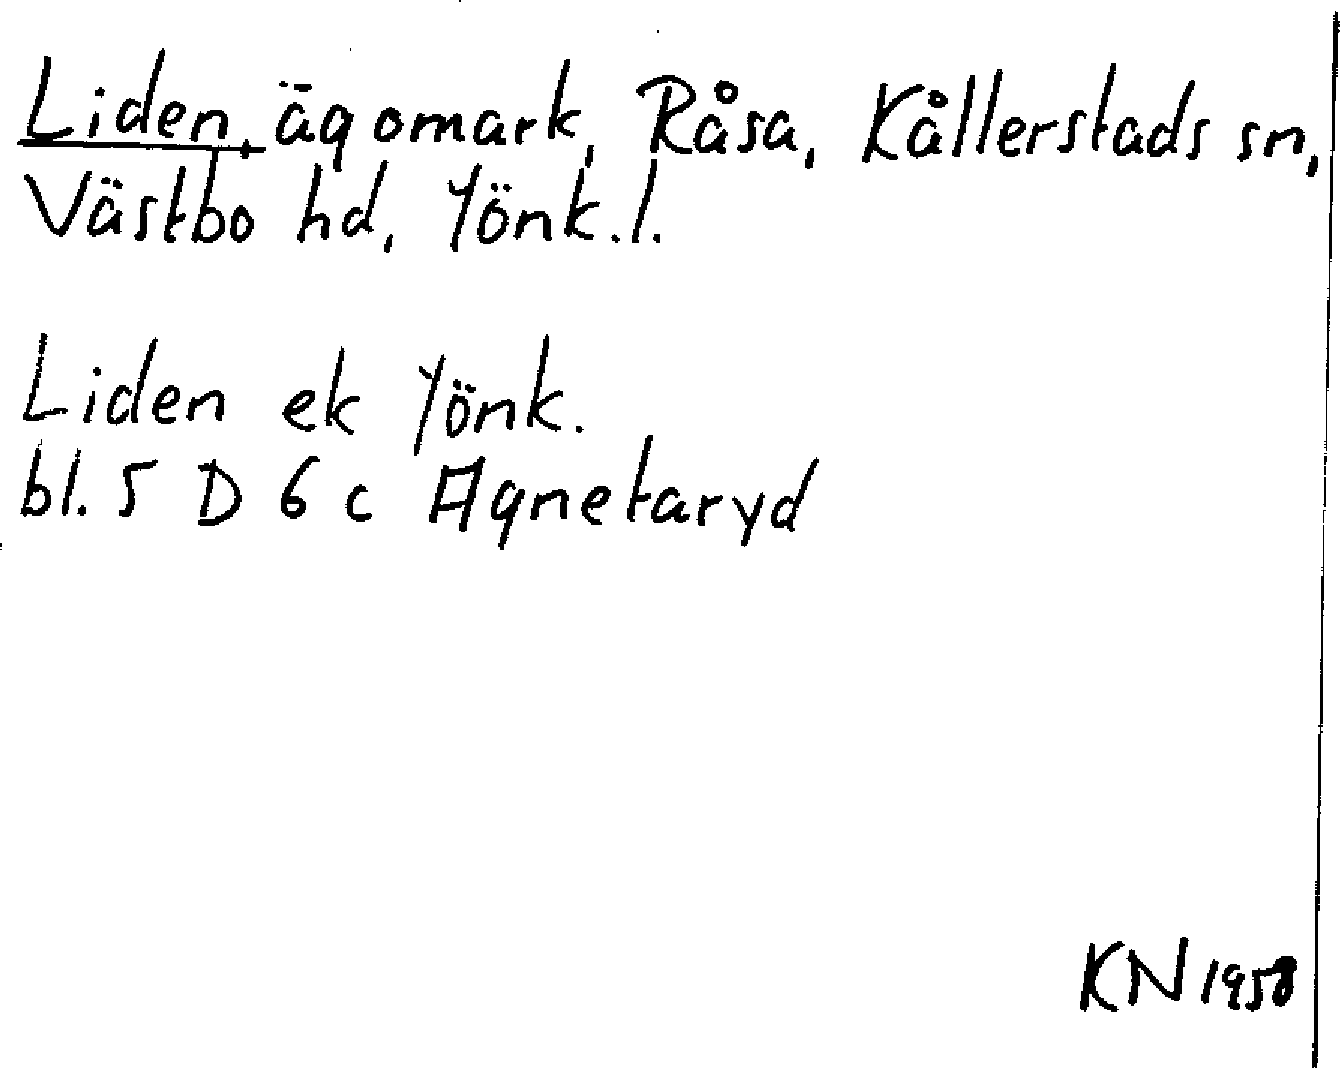 Liden, ägomark, Råsa, Kållerstads sn,
Västbo hd, Jönk.l.
Liden ek Jönk.
bl. 5 D 6 c Agnetaryd
KN 1958